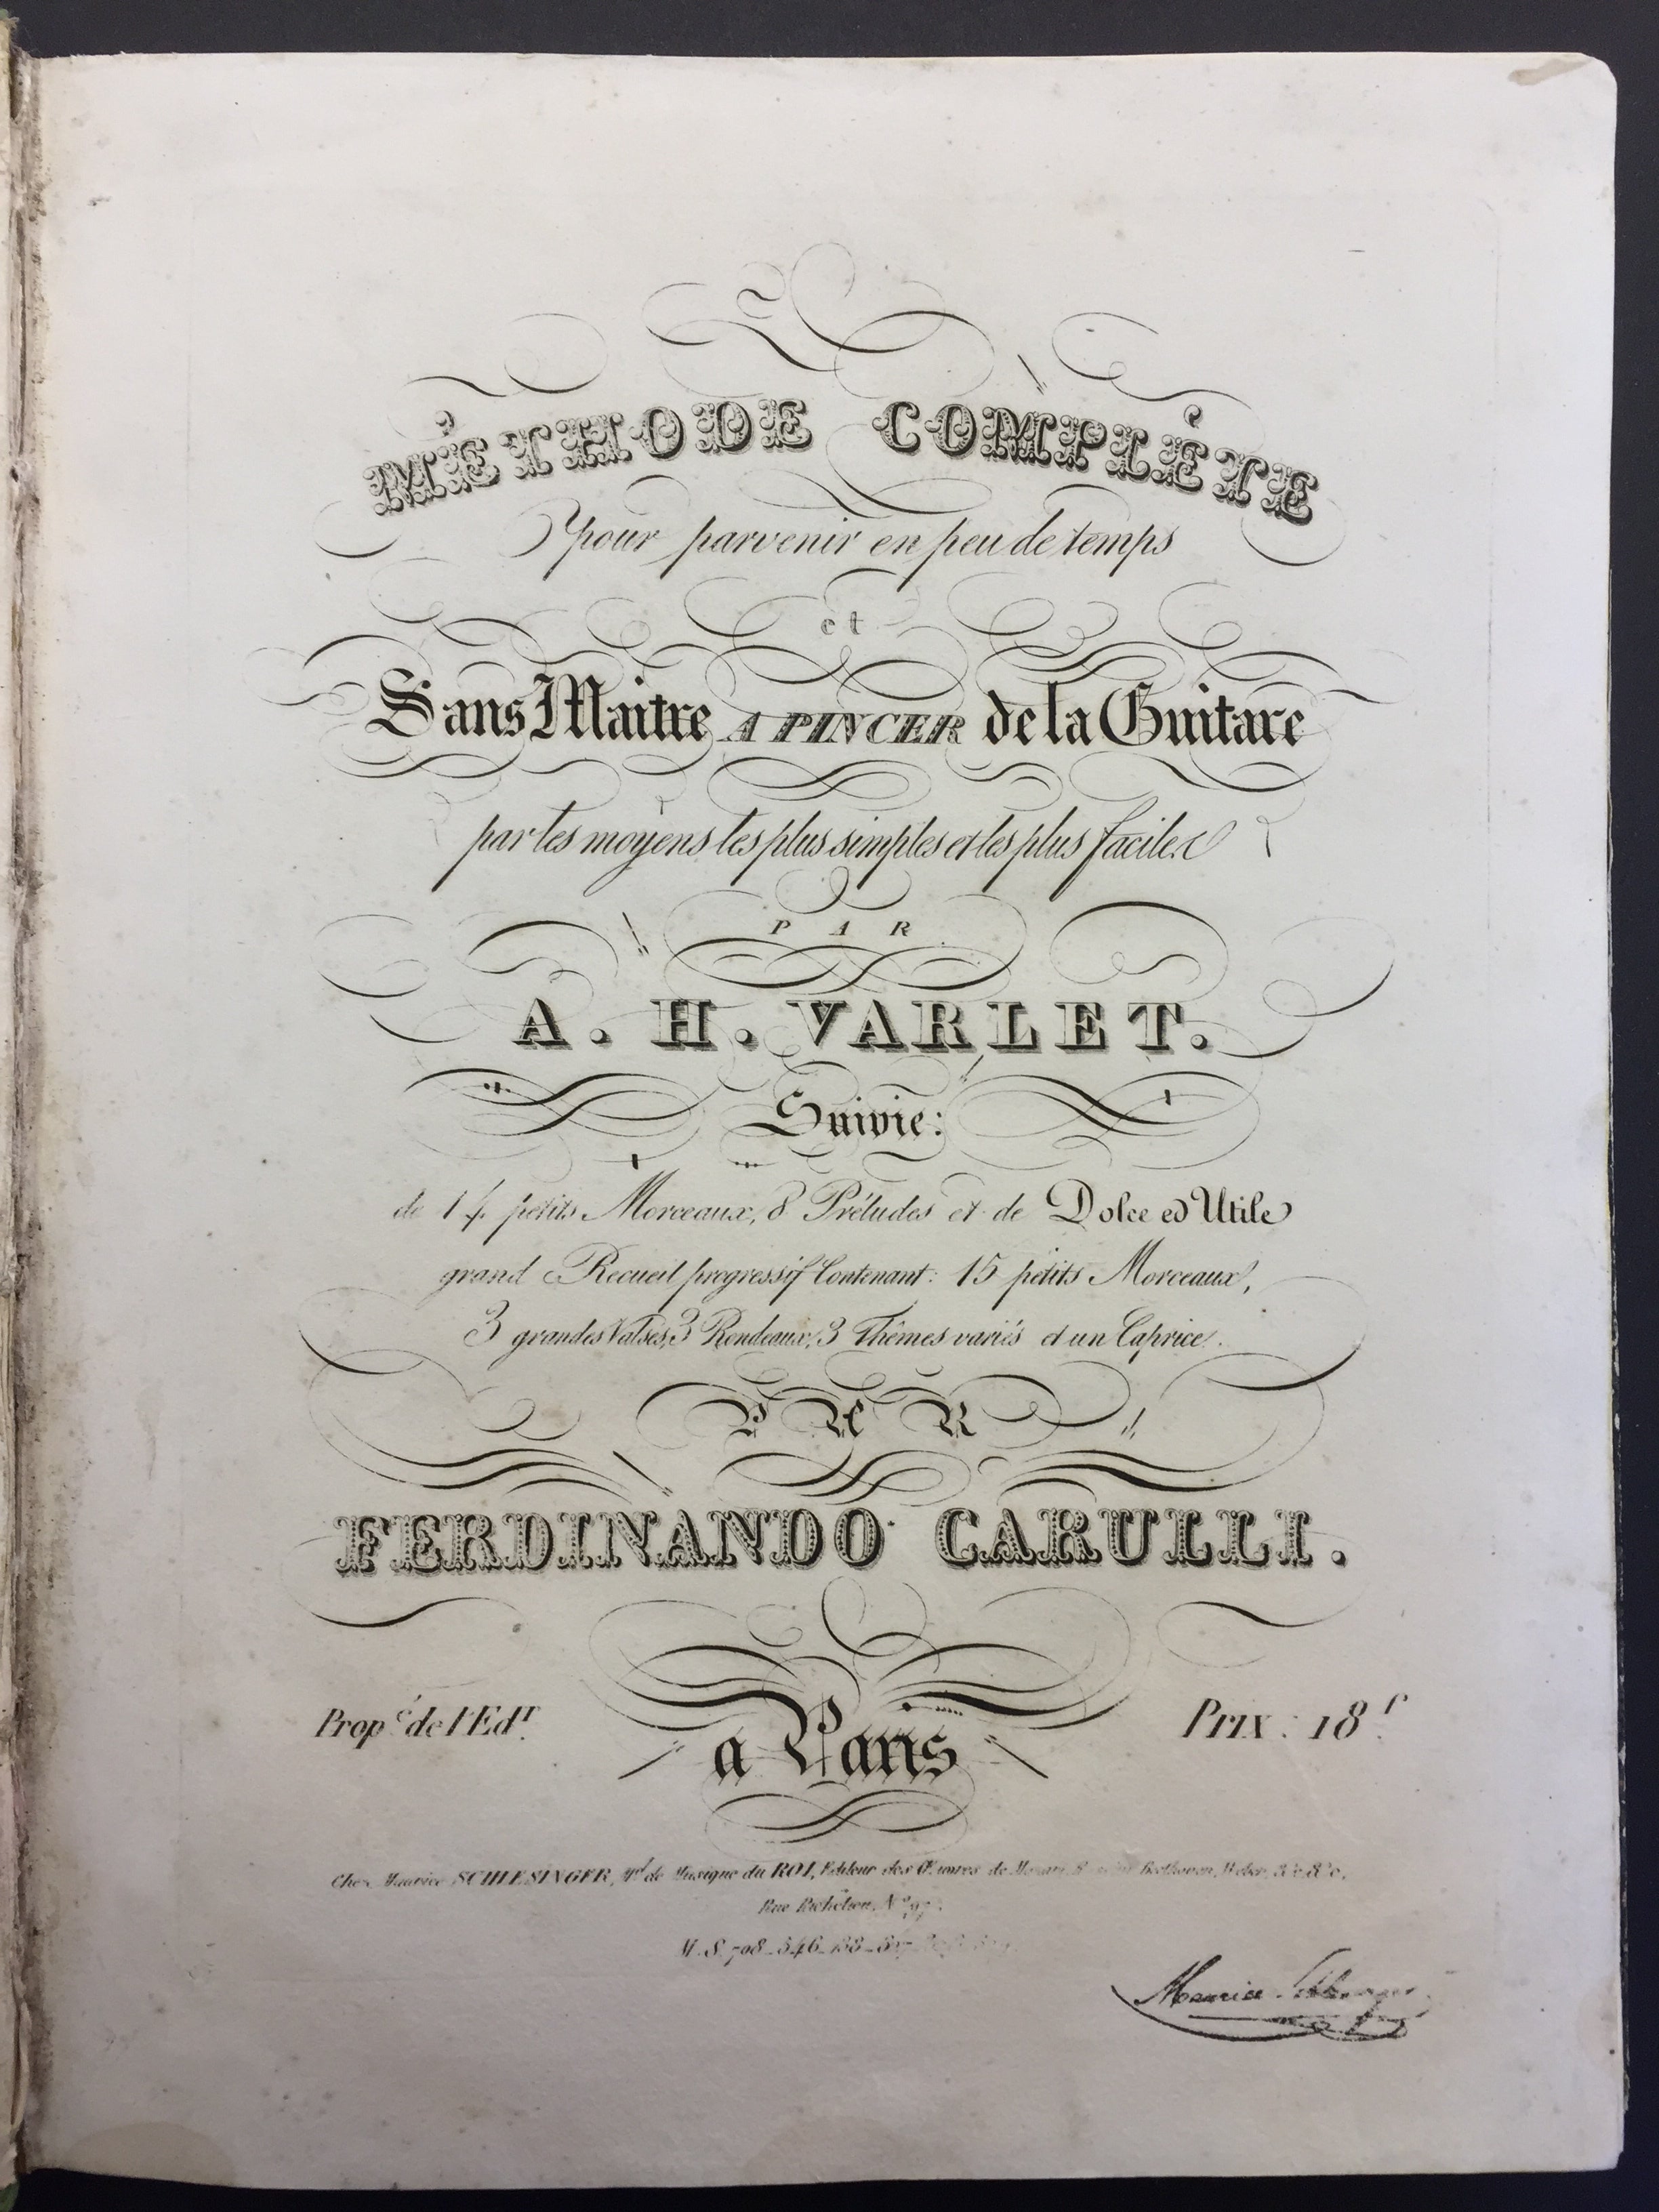 MÉTHODE COMPLÈTE
pour parvenir en peu de temps
et
Sans Maitre A PINCER de la Guitare
par les moyens les plus simples et les plus faciles
PAR
A. H. VARLET.
Suivie:
de 14 petits Morceaux, 8 Préludes et de Dolce ed Utile
grand Recueil progressif Contenant: 15 petits Morceaux,
3 grandes Valses, 3 Rondeaux, 3 Thêmes variés et un Caprice.
PAR
FERDINANDO CARULLI.
Prop.é de l'Ed.r
a Paris
Prix: 18.f
Chez Maurice SCHLESINGER, M.d de Musique du ROI, Editeur des Œuvres de Mozart, Beethoven, Weber, &.c &.c
Rue Richelieu, N.o 97.
M.S. 708_546_
Maurice Schlesinger